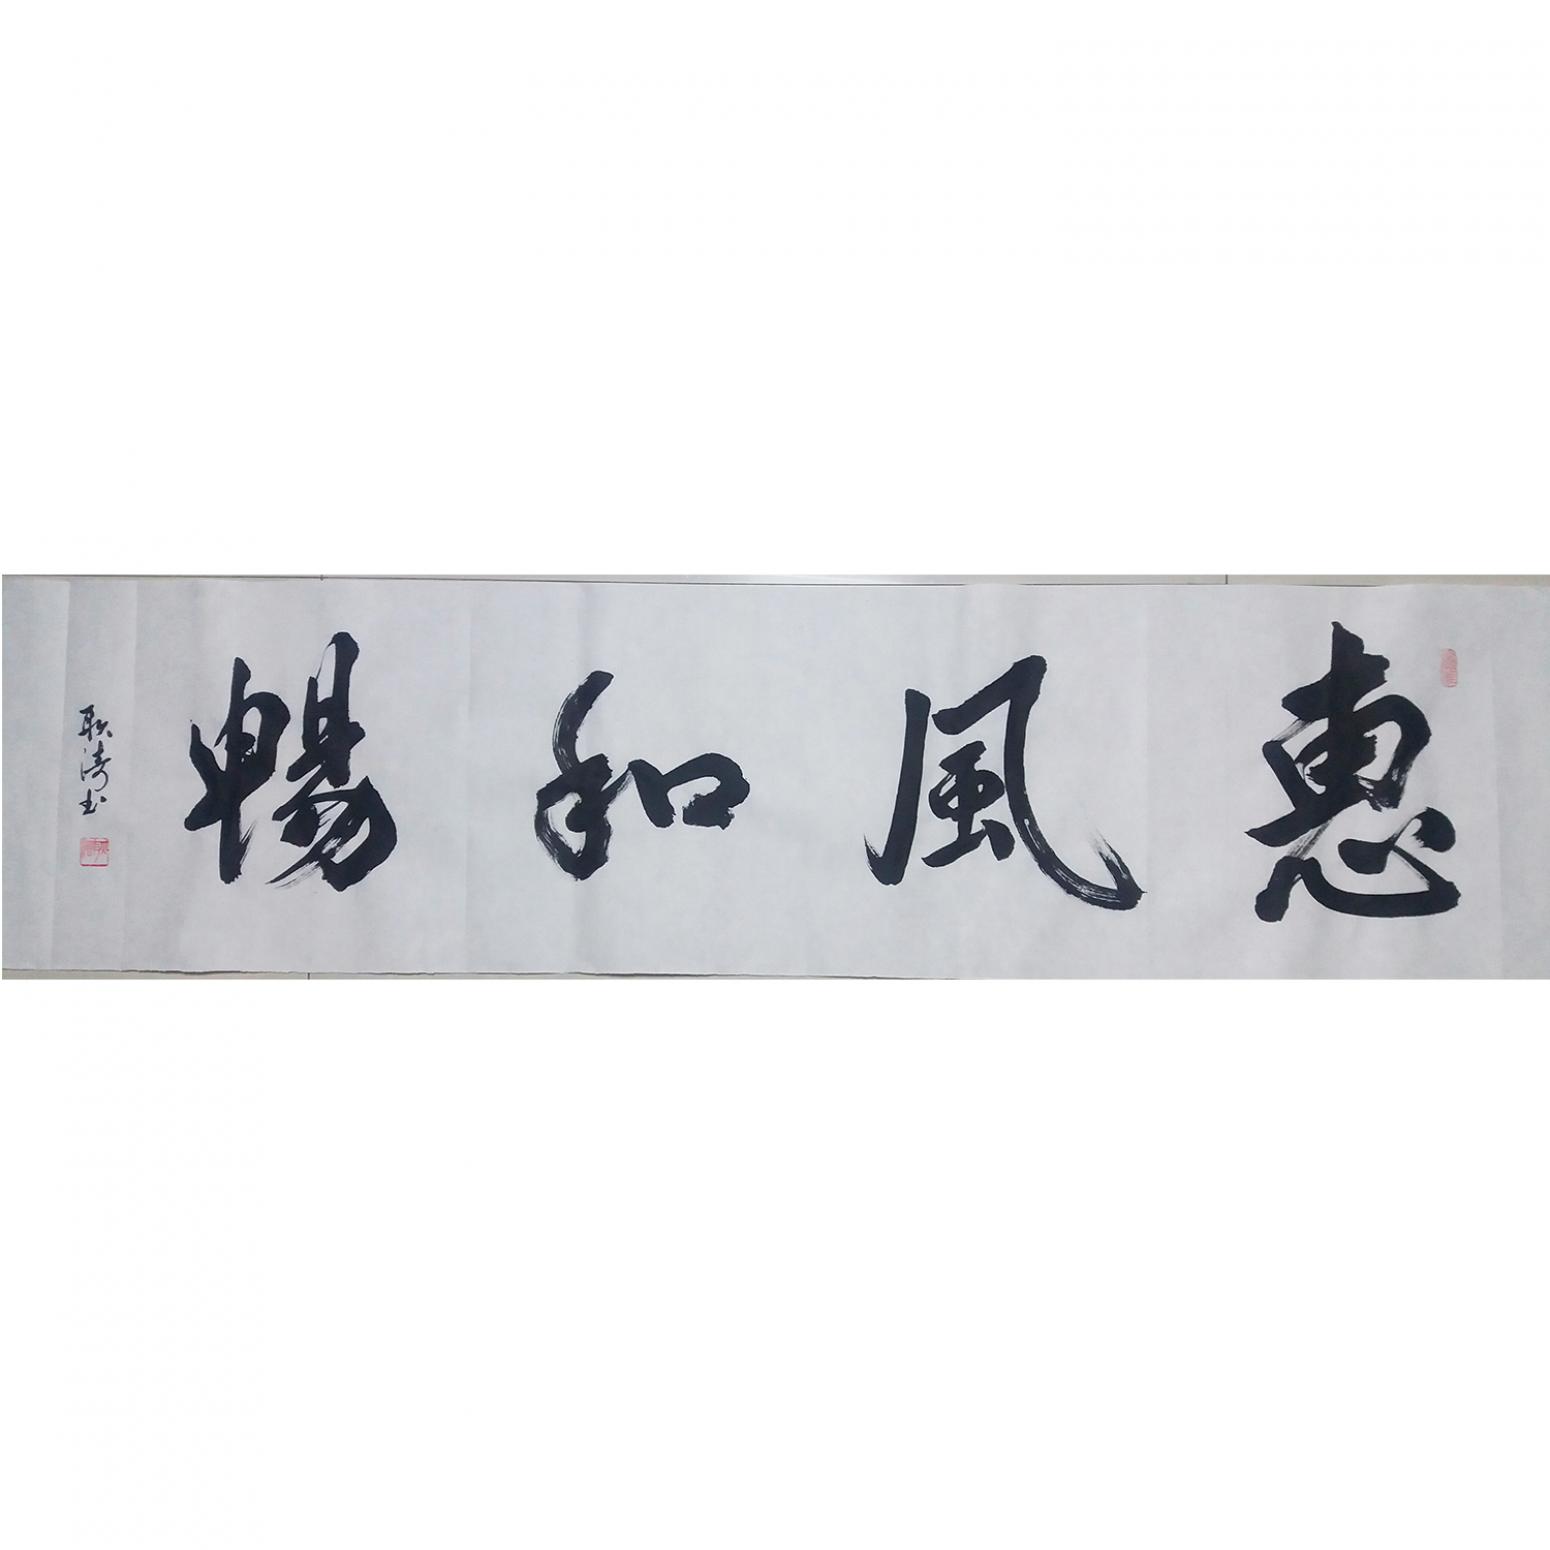 惠風和暢
耿涛书